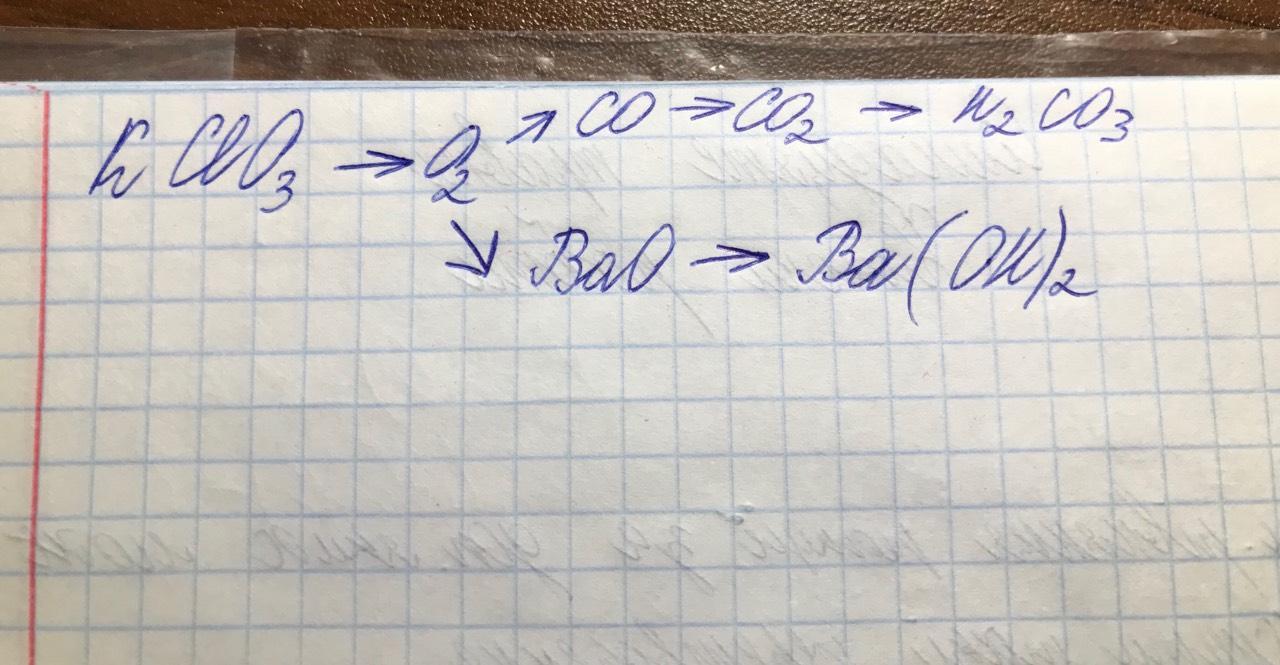 KClO₃ → O₂ ↗ CO → CO₂ → H₂CO₃
↘ BaO → Ba(OH)₂